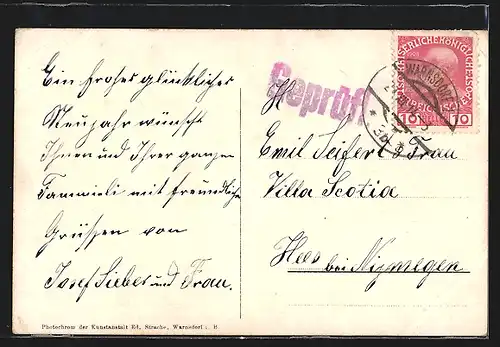 Ein frohes glückliches
Neujahr wünscht
Ihnen und Ihrer ganzen
Fammieli mit freundliche
Grüssen von
Josef Sieber und Frau.
Geprüft
H
Emil Seifert Frau
Villa Scotia
Hees bei Nijmegen
WARNSDORF
10 10
Photochrom der Kunstanstalt Ed. Strache, Warnsdorf i. B